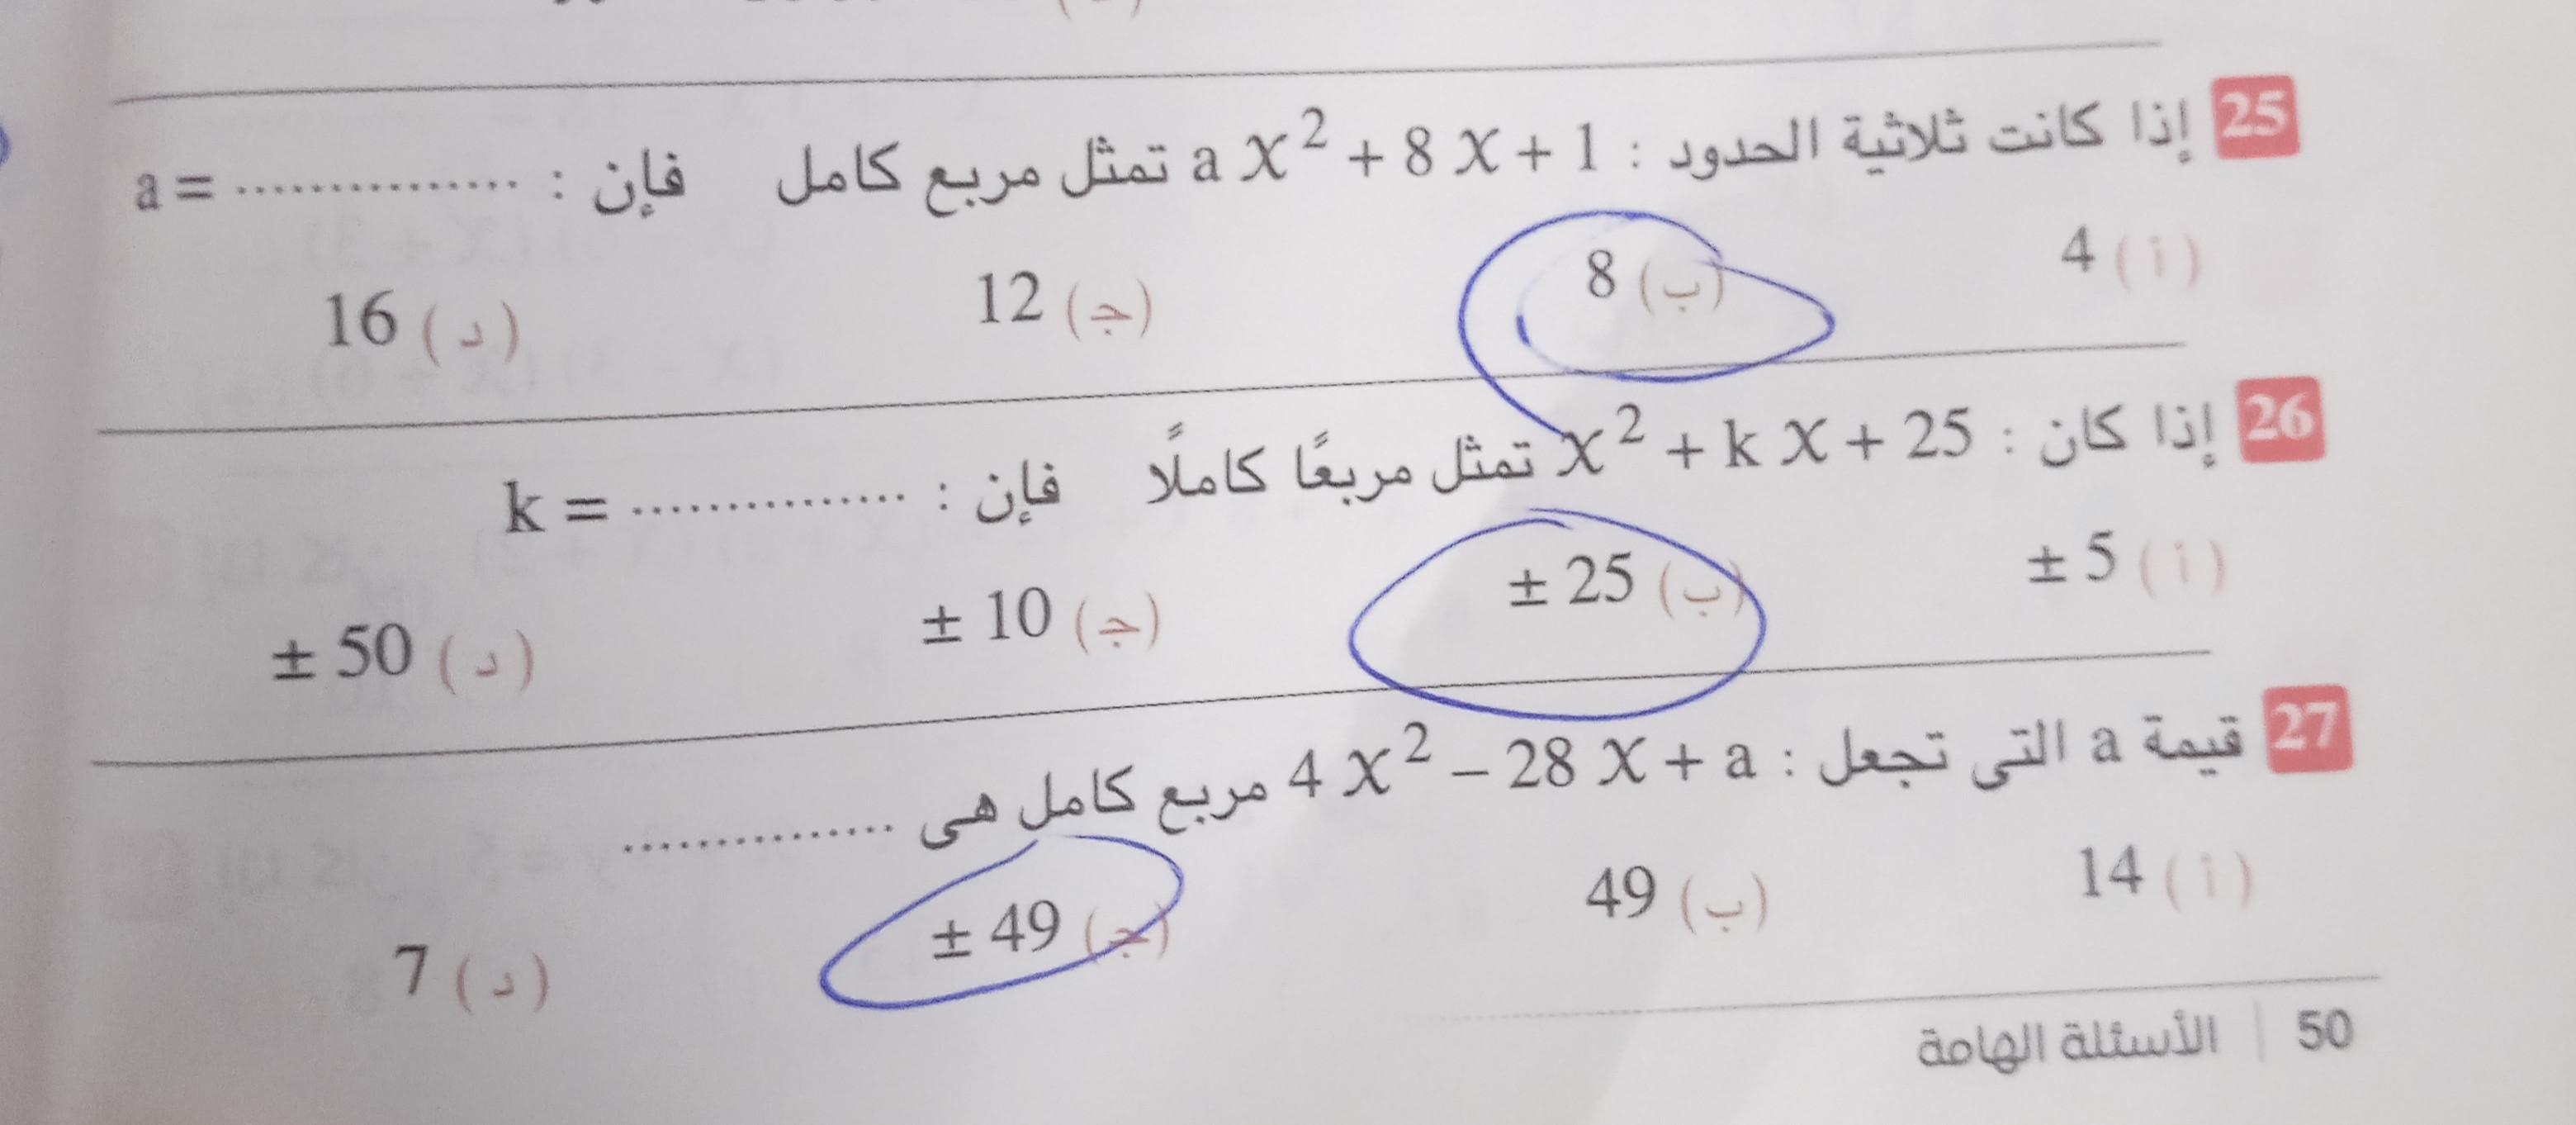 25 إذا كانت ثلاثية الحدود : a x² + 8 x + 1 تمثل مربع كامل فإن : a = ...............
(أ) 4 (ب) 8 (جـ) 12 (د) 16
26 إذا كان : x² + k x + 25 تمثل مربعًا كاملًا فإن : k = ...............
(أ) ± 5 (ب) ± 25 (جـ) ± 10 (د) ± 50
27 قيمة a التى تجعل : 4 x² – 28 x + a مربع كامل هى ...............
(أ) 14 (ب) 49 (جـ) ± 49 (د) 7
50 | الأسئلة الهامة